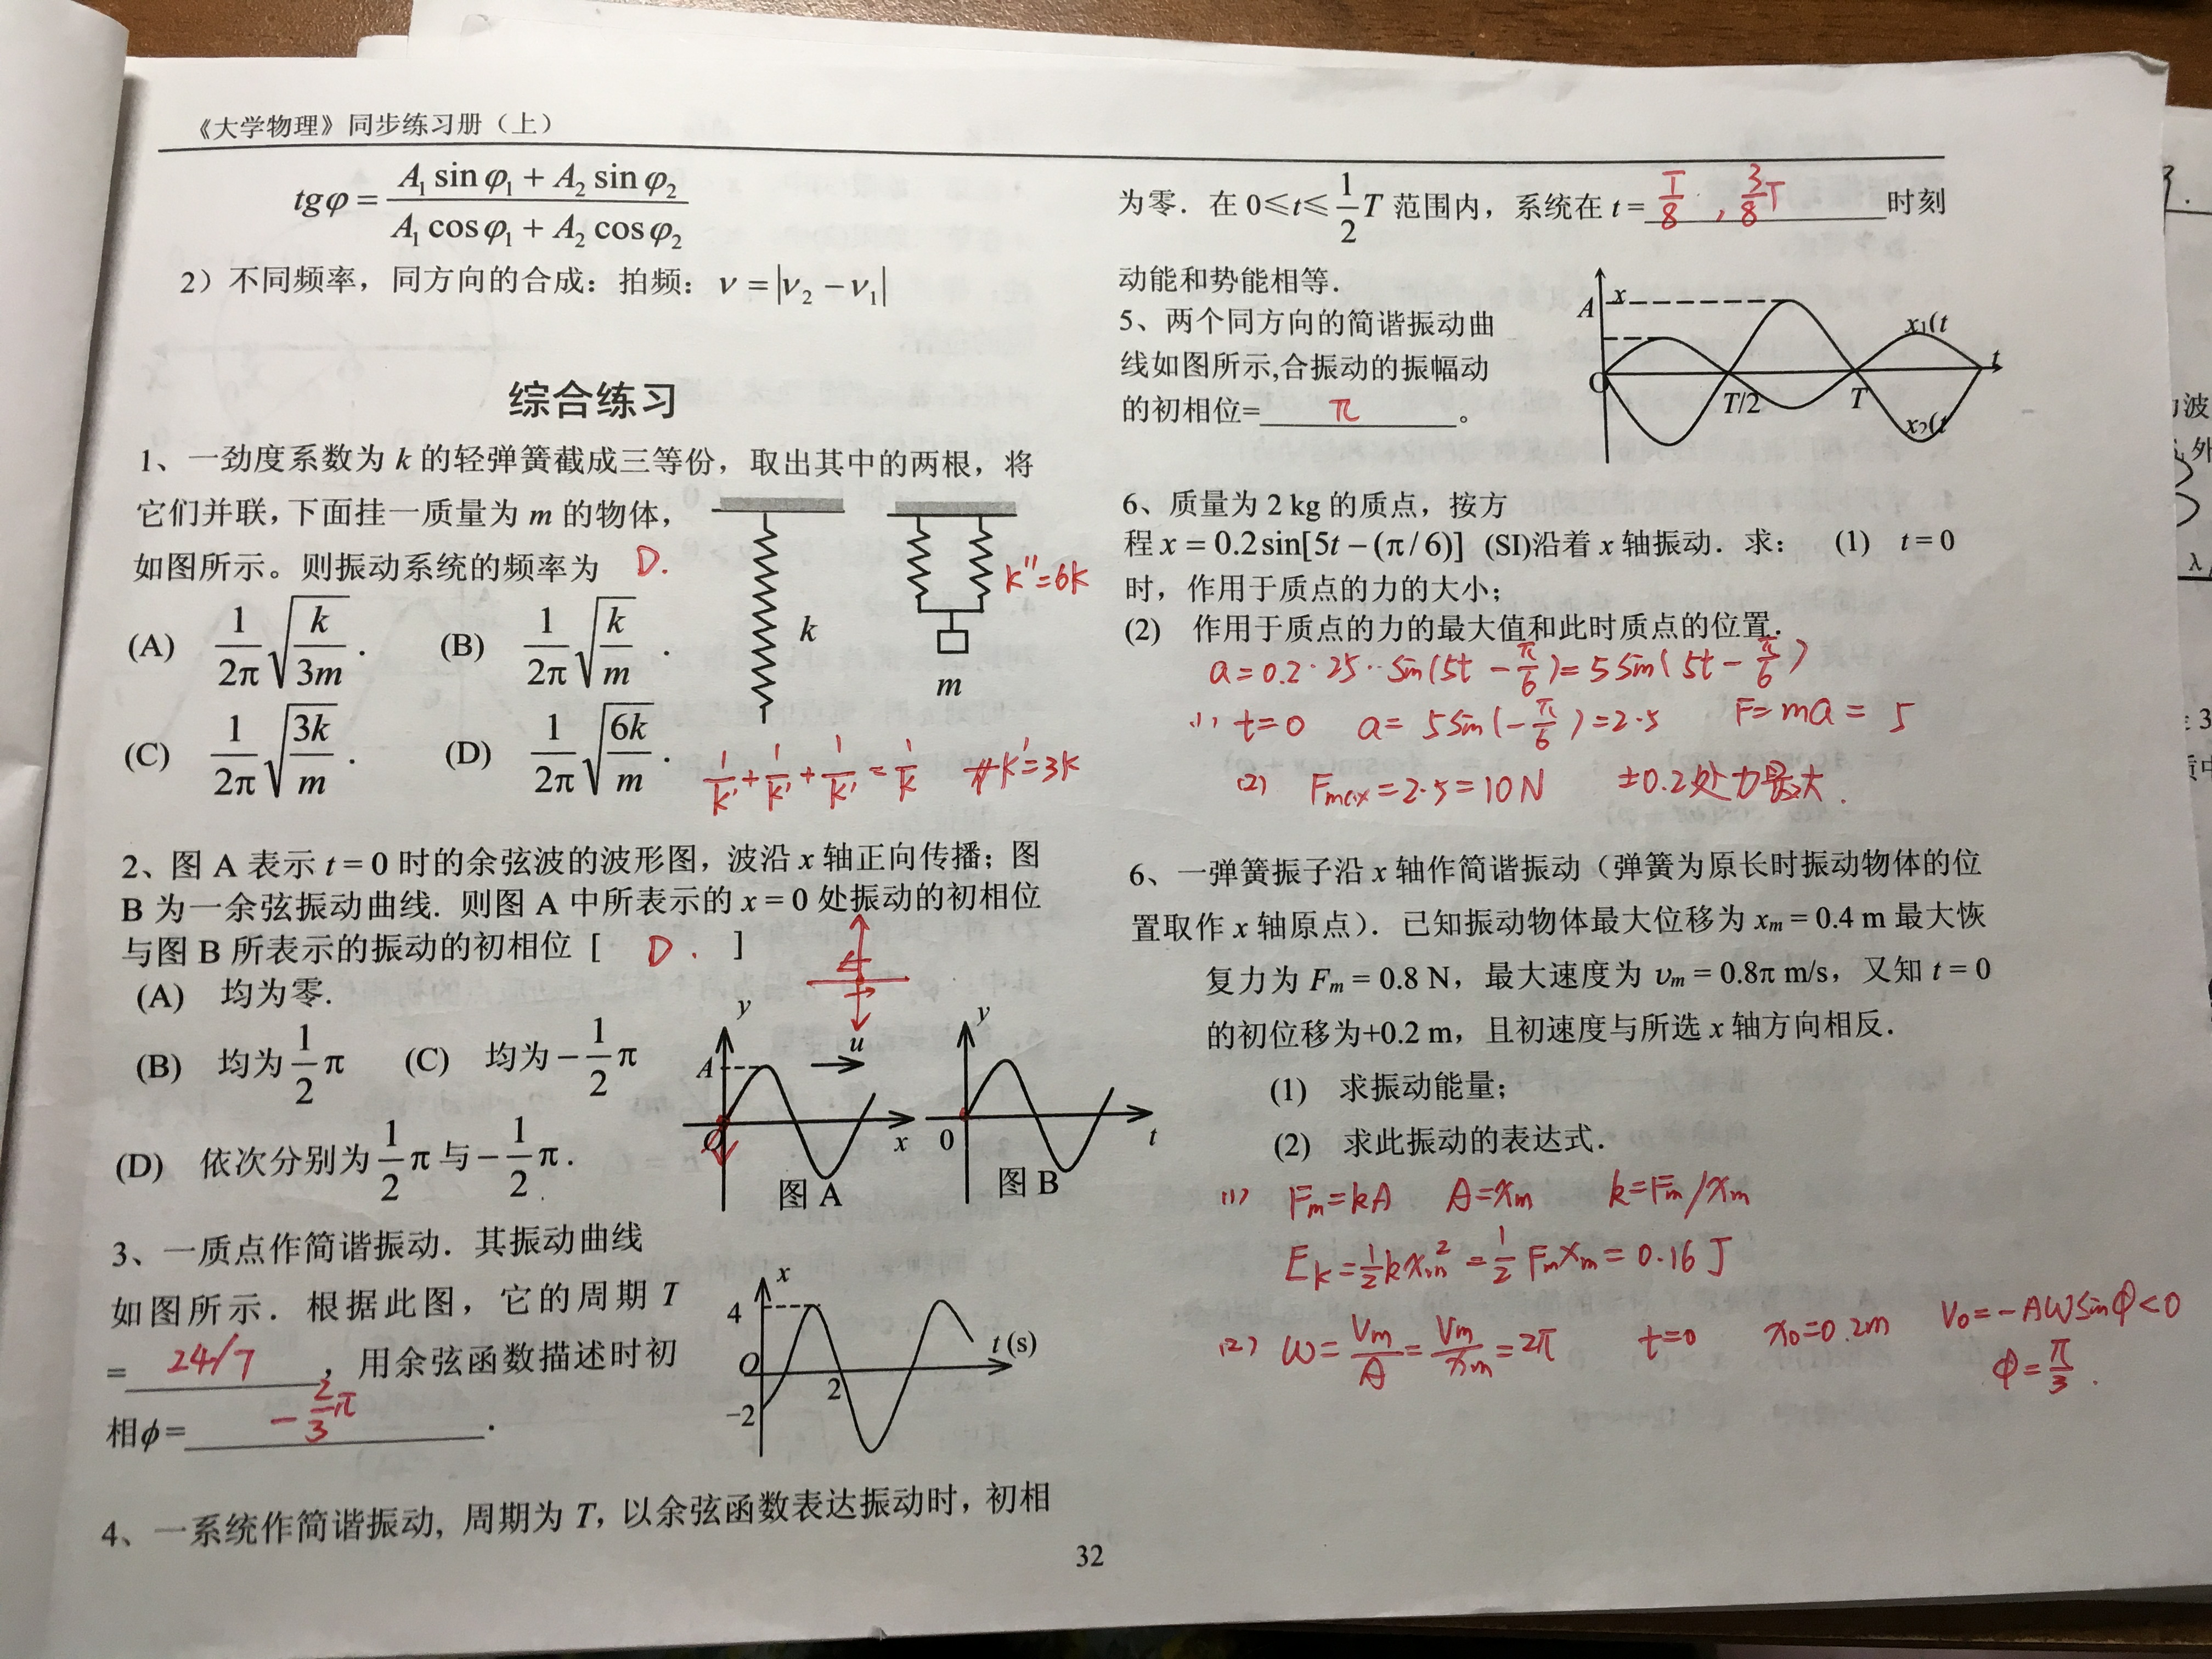 《大学物理》同步练习册（上）
tgφ = (A₁ sin φ₁ + A₂ sin φ₂) / (A₁ cos φ₁ + A₂ cos φ₂)
2）不同频率，同方向的合成：拍频：ν = |ν₂ − ν₁|
综合练习
1、一劲度系数为 k 的轻弹簧截成三等份，取出其中的两根，将
它们并联，下面挂一质量为 m 的物体，
如图所示。则振动系统的频率为 D.
(A) (1/2π)√(k/3m) . (B) (1/2π)√(k/m) .
(C) (1/2π)√(3k/m) . (D) (1/2π)√(6k/m) .
k
m
k''=6k
1/k' + 1/k' + 1/k' = 1/k k'=3k
2、图 A 表示 t = 0 时的余弦波的波形图，波沿 x 轴正向传播；图
B 为一余弦振动曲线．则图 A 中所表示的 x = 0 处振动的初相位
与图 B 所表示的振动的初相位 [ D . ]
(A) 均为零．
(B) 均为 1/2 π (C) 均为 −1/2 π
(D) 依次分别为 1/2 π 与 −1/2 π．
y
A
u
x
图 A
y
0
t
图 B
3、一质点作简谐振动．其振动曲线
如图所示．根据此图，它的周期 T
= 24/7 ，用余弦函数描述时初
相 ϕ = −2/3 π ．
x
4
O
−2
2
t (s)
4、一系统作简谐振动，周期为 T，以余弦函数表达振动时，初相
为零．在 0≤t≤ 1/2 T 范围内，系统在 t = T/8 , 3/8 T 时刻
动能和势能相等．
5、两个同方向的简谐振动曲
线如图所示,合振动的振幅动
的初相位= π 。
x
A
O
T/2
T
t
x₁(t
x₂(t
6、质量为 2 kg 的质点，按方
程 x = 0.2 sin[5t − (π/6)] (SI)沿着 x 轴振动．求： (1) t = 0
时，作用于质点的力的大小；
(2) 作用于质点的力的最大值和此时质点的位置．
a = 0.2·25·Sin(5t − π/6) = 5 Sin(5t − π/6)
(1) t=0 a = 5 Sin(−π/6) = 2.5 F = ma = 5
(2) Fmax = 2·5 = 10N ±0.2处力最大．
6、一弹簧振子沿 x 轴作简谐振动（弹簧为原长时振动物体的位
置取作 x 轴原点）．已知振动物体最大位移为 xm = 0.4 m 最大恢
复力为 Fm = 0.8 N，最大速度为 υm = 0.8π m/s，又知 t = 0
的初位移为+0.2 m，且初速度与所选 x 轴方向相反．
(1) 求振动能量；
(2) 求此振动的表达式．
(1) Fm=kA A=xm k=Fm/xm
Ek = 1/2 kxm² = 1/2 Fm xm = 0.16 J
(2) W = Vm/A = Vm/xm = 2π t=0 x₀=0.2m V₀ = −AWSinφ<0
φ = π/3 .
32